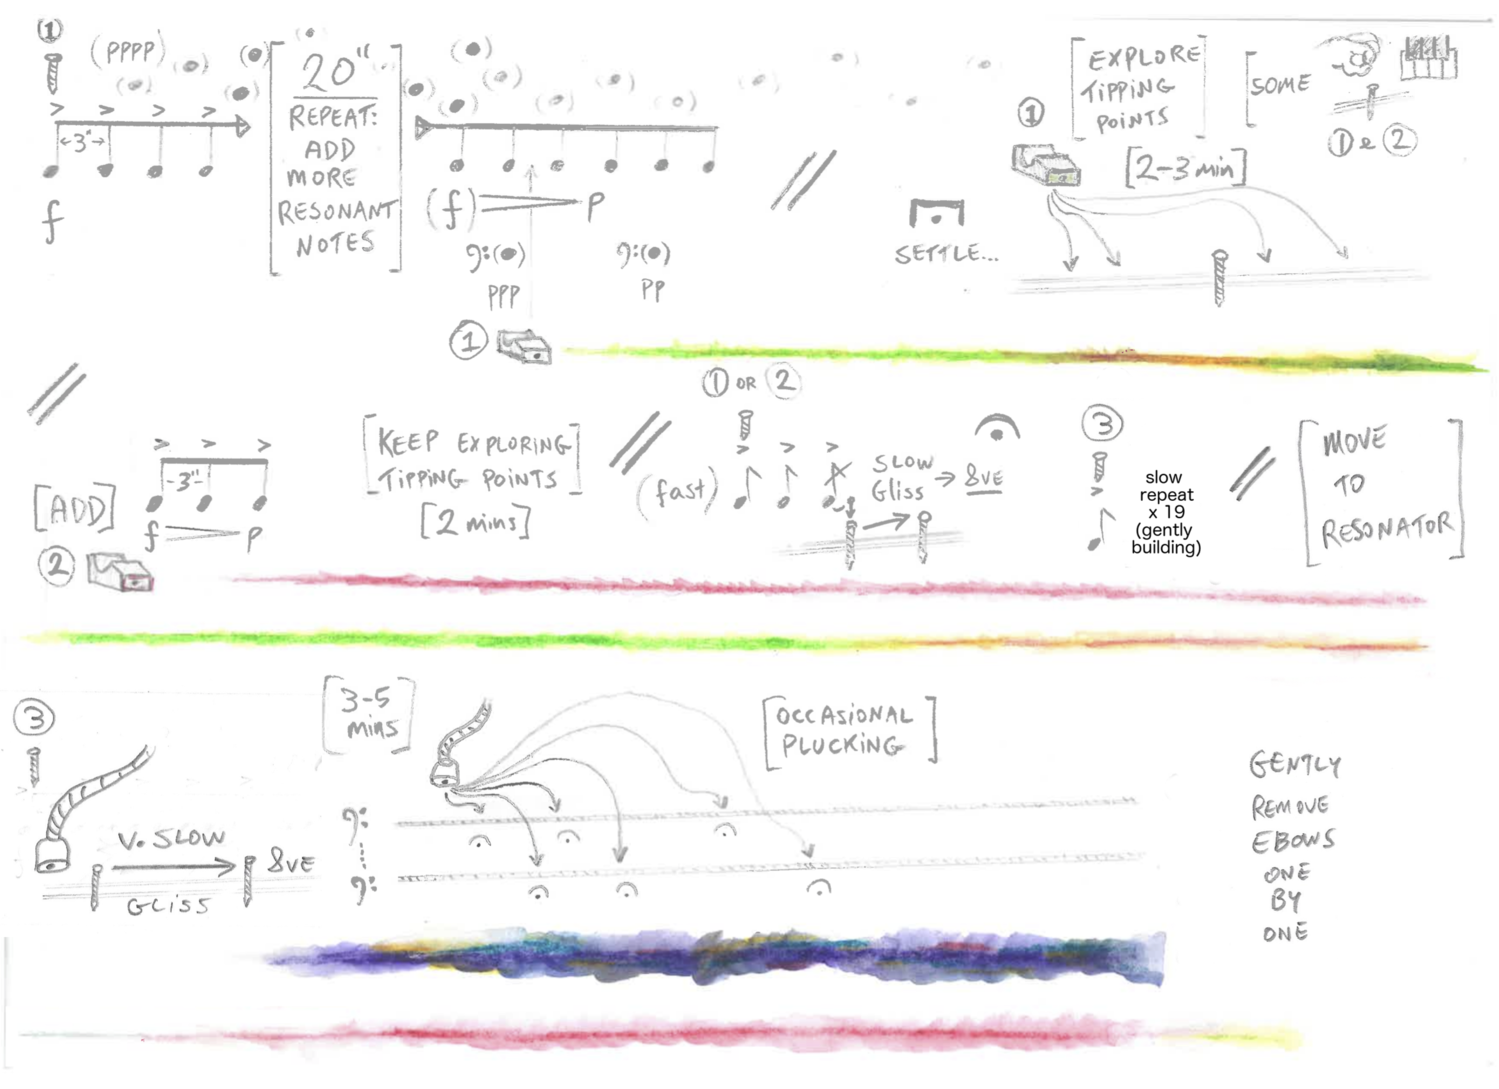 1
(PPPP)
3"
f
20"
REPEAT:
ADD
MORE
RESONANT
NOTES
(f) p
PPP
PP
1
SETTLE...
1
[EXPLORE
TIPPING
POINTS]
[2-3 min]
[SOME
1 e 2
[ADD]
2
3"
f p
[KEEP EXPLORING
TIPPING POINTS]
[2 mins]
1 OR 2
(fast)
SLOW
Gliss → 8VE
3
slow
repeat
x 19
(gently
building)
[MOVE
TO
RESONATOR]
3
V. SLOW
8VE
GLISS
[3-5
mins]
[OCCASIONAL
PLUCKING]
GENTLY
REMOVE
EBOWS
ONE
BY
ONE